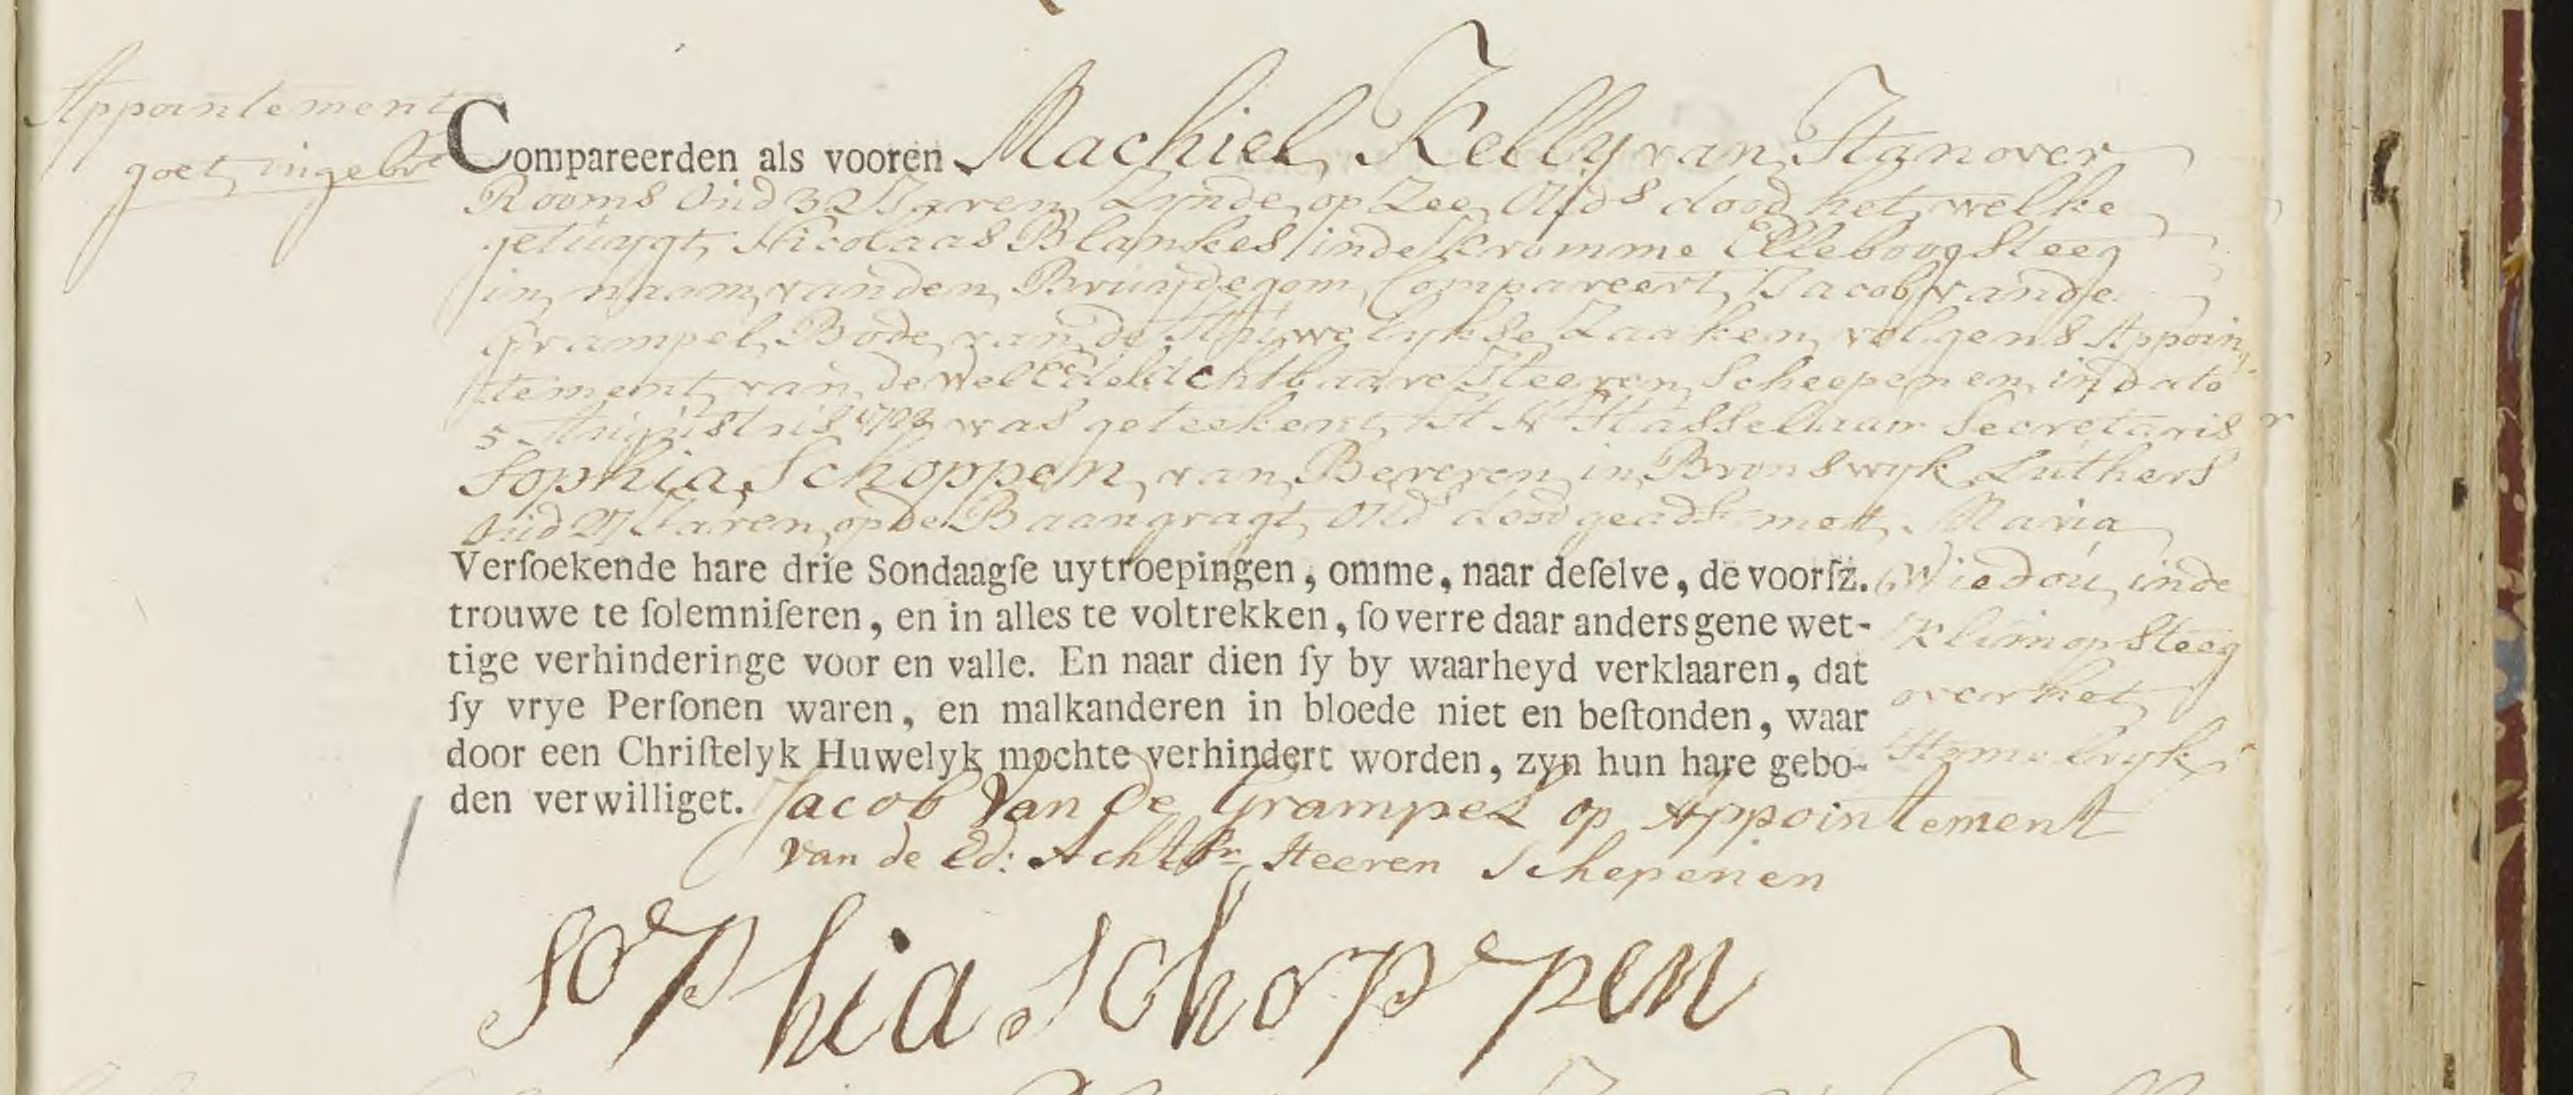 Appointement
goet ingebrt
Compareerden als vooren Machiel Kelly van Hanover
Rooms Oud 32 Jaren, Zynde op Zee, Ouds dood het welke
getuygt, Nicolaas Blankes inde kromme Elleboog Steeg
in naam van den Bruydegom, Compareert Jacob van de
Grampel, Bode van de Huwelykse Zaaken, volgens Appoin
tement van de Wel Edele Achtbaare Heeren Scheepenen, in dato
5 Augustus was geteekent Hasselaar Secretaris
Sophia Schoppen, van Beveren in Bronswyk Luthers
Oud 27 Jaren, op de Baangragt, Ouds dood geadst mett Maria
Verſoekende hare drie Sondaagſe uytroepingen, omme, naar deſelve, de voorſz. Wiedou, inde
trouwe te ſolemniſeren, en in alles te voltrekken, ſo verre daar anders gene wet- Klimop Steeg
tige verhinderinge voor en valle. En naar dien ſy by waarheyd verklaaren, dat
ſy vrye Perſonen waren, en malkanderen in bloede niet en beſtonden, waar over het
door een Chriſtelyk Huwelyk mochte verhindert worden, zyn hun hare gebo- Hemelryk
den verwilliget. Jacob Van de Grampel op Appointement
van de Ed: Achtbr Heeren Schepenen
Sophia Schoppen